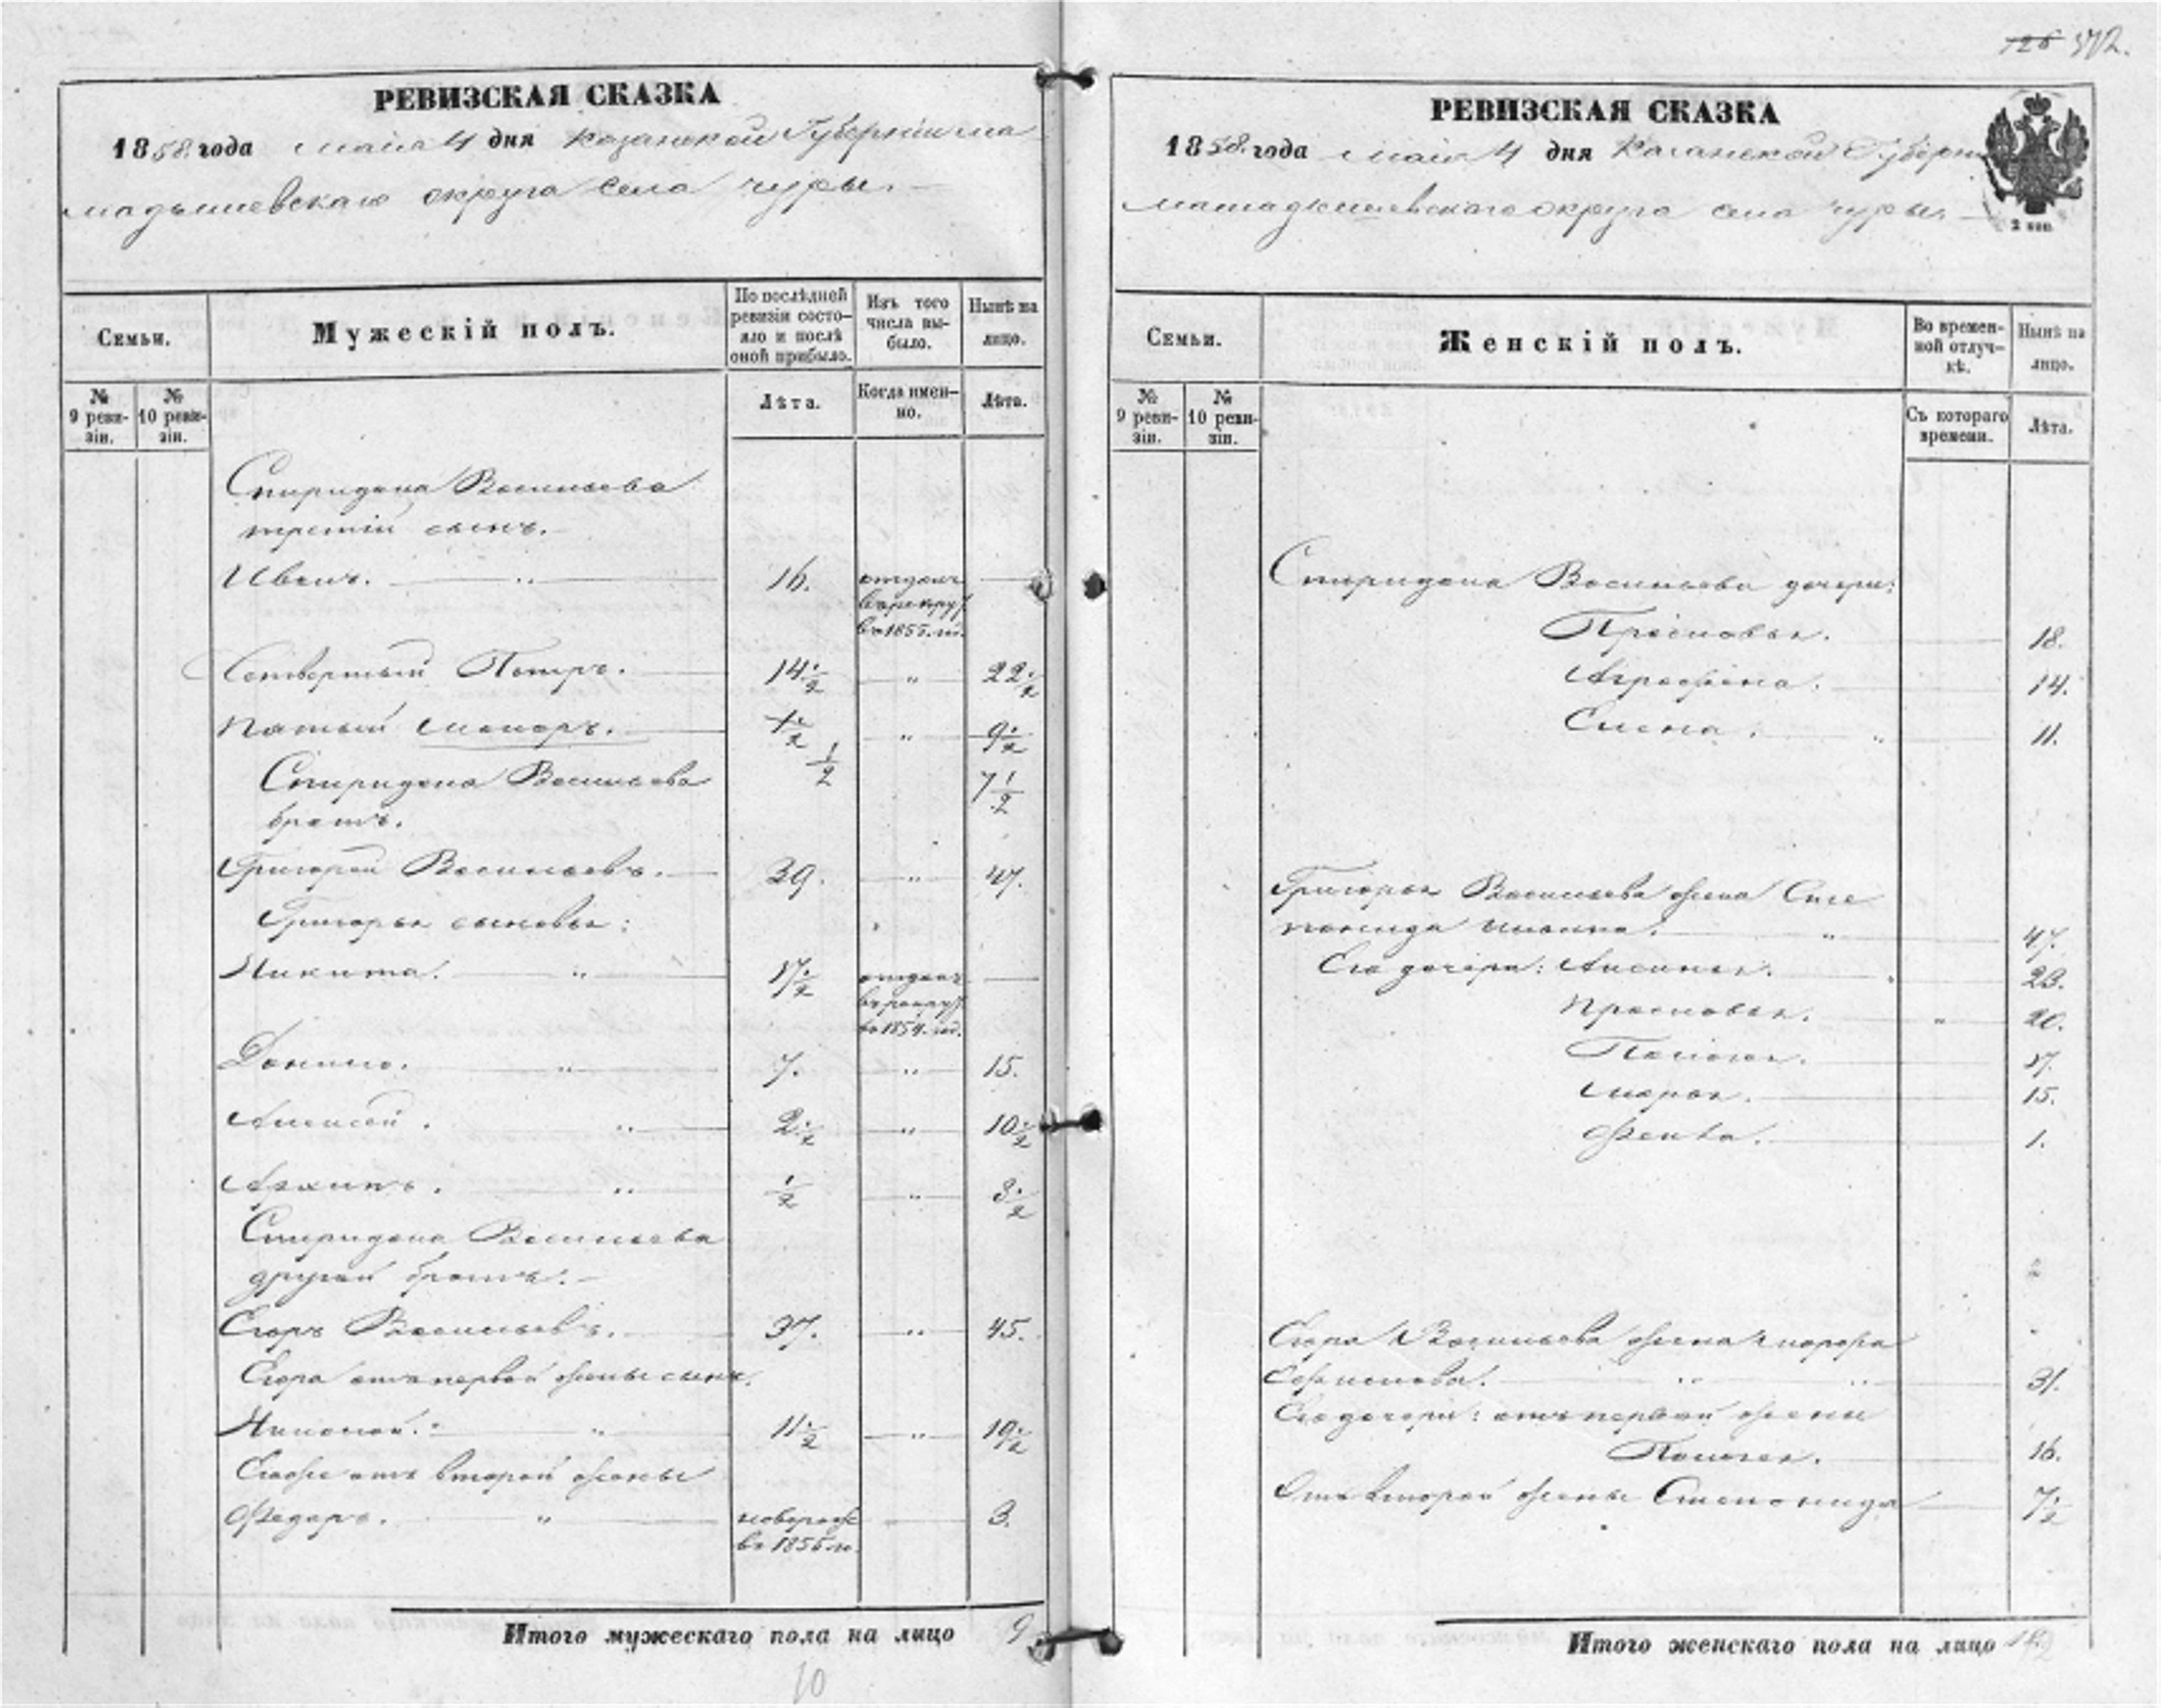 РЕВИЗСКАЯ СКАЗКА
1858. года мая 4 дня Казанской Губерніи ма
мадышевскаго округа села чуры.
Семьи.
Мужескій полъ.
По послѣдней ревизіи состояло и послѣ оной прибыло.
Изъ того числа выбыло.
Нынѣ на лицо.
№ 9 ревизіи.
№ 10 ревизіи.
Лѣта.
Когда именно.
Лѣта.
Спиридона Васильева
третій сынъ.
Иванъ. 16. отданъ
в рекру
в 1855. го.
Четвертый Петръ. 14 1/2 " 22 1/2
Пятый 1/2 " 9 1/2
1/2 7 1/2
Спиридона Васильева
братъ.
Григорей Васильевъ. 39. " 47.
Григорья сыновья:
Никита. " 17 1/2 отданъ
в рекру
в 1854. го.
Данило. " 7. " 15.
Алексей. " 2 1/2 " 10 1/2
Архипъ. " 1/2 " 8 1/2
Спиридона Васильева
другой братъ.
Егоръ Васильевъ. 37. " 45.
Егора отъ первой жены сынъ.
Николай. " 11 1/2 " 19 1/2
Егоже отъ второй жены
Федоръ. " новорож 3.
в 1855 го
Итого мужескаго пола на лицо 9
10
126 572.
РЕВИЗСКАЯ СКАЗКА
1858. года мая 4 дня Казанской Губерні
мамадышевскаго округа села чуры.
2 коп.
Семьи.
Женскій полъ.
Во временной отлучкѣ.
Нынѣ на лицо.
№ 9 ревизіи.
№ 10 ревизіи.
Съ котораго времени.
Лѣта.
Спиридона Васильева дочери:
Прасковья. 18.
Аграфена. 14.
Елена. " 11.
Григорья Васильева жена Сте
понида 47.
Его дочери: Аксинья. 23.
Прасковья. " 20.
Палагея. 17.
Марья. 15.
Фекла. 1.
Егора Васильева жена
31.
Его дочери: отъ первой жены
Палагея. 16.
Отъ второй жены Степонида 7 1/2
Итого женскаго пола на лицо 12